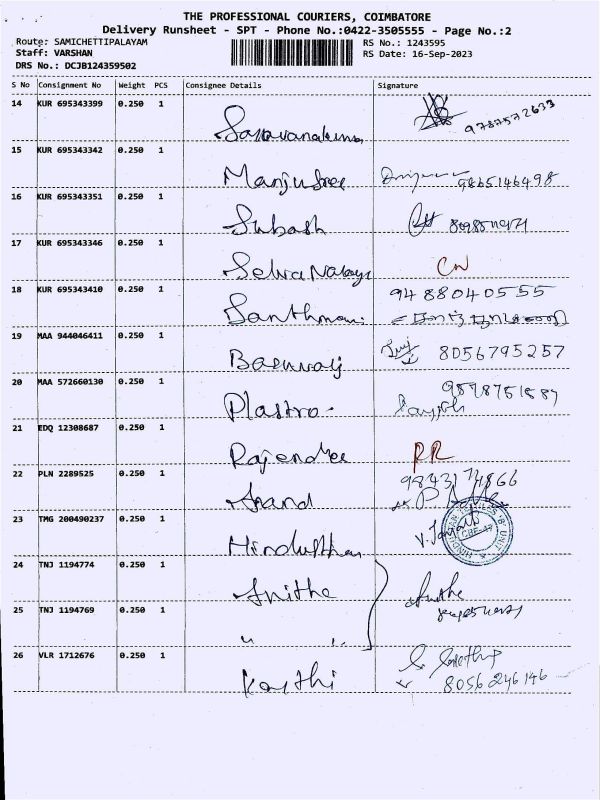 THE PROFESSIONAL COURIERS, COIMBATORE
Delivery Runsheet - SPT - Phone No.:0422-3505555 - Page No.:2
Route: SAMICHETTIPALAYAM RS No.: 1243595
Staff: VARSHAN RS Date: 16-Sep-2023
DRS No.: DCJB124359502
S No Consignment No Weight PCS Consignee Details Signature
14 KUR 695343399 0.250 1
Saravanakumar 9787572633
15 KUR 695343342 0.250 1
Manjusree 9865146498
16 KUR 695343351 0.250 1
Subash
17 KUR 695343346 0.250 1
Selva CN
18 KUR 695343410 0.250 1
9488040555
Santhmani
19 MAA 944046411 0.250 1
8056795257
20 MAA 572660130 0.250 1
Plastro
21 EDQ 12308687 0.250 1
RR
22 PLN 2289525 0.250 1
Anand
23 TMG 200490237 0.250 1
Hindusthan
24 TNJ 1194774 0.250 1
Anitha
25 TNJ 1194769 0.250 1
" "
26 VLR 1712676 0.250 1
Karthi 8056246146